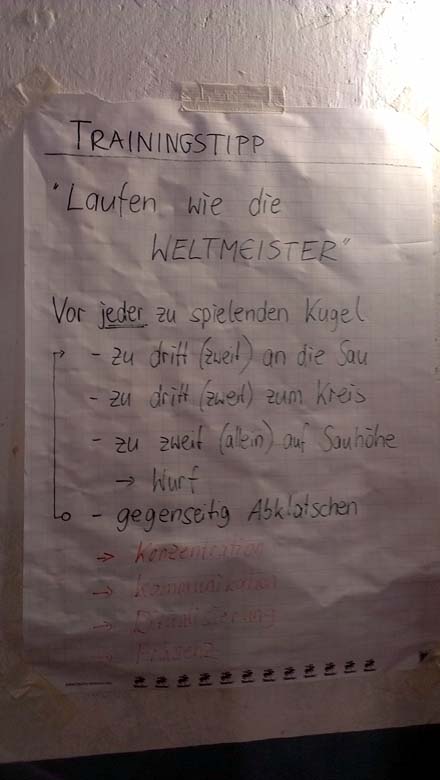 TRAININGSTIPP
"Laufen wie die
WELTMEISTER"
Vor jeder zu spielenden Kugel
- zu dritt (zweit) an die Sau
- zu dritt (zweit) zum Kreis
- zu zweit (allein) auf Sauhöhe
→ Wurf
- gegenseitig Abklatschen
→ Konzentration
→ Kommunikation
→
→ Präsenz